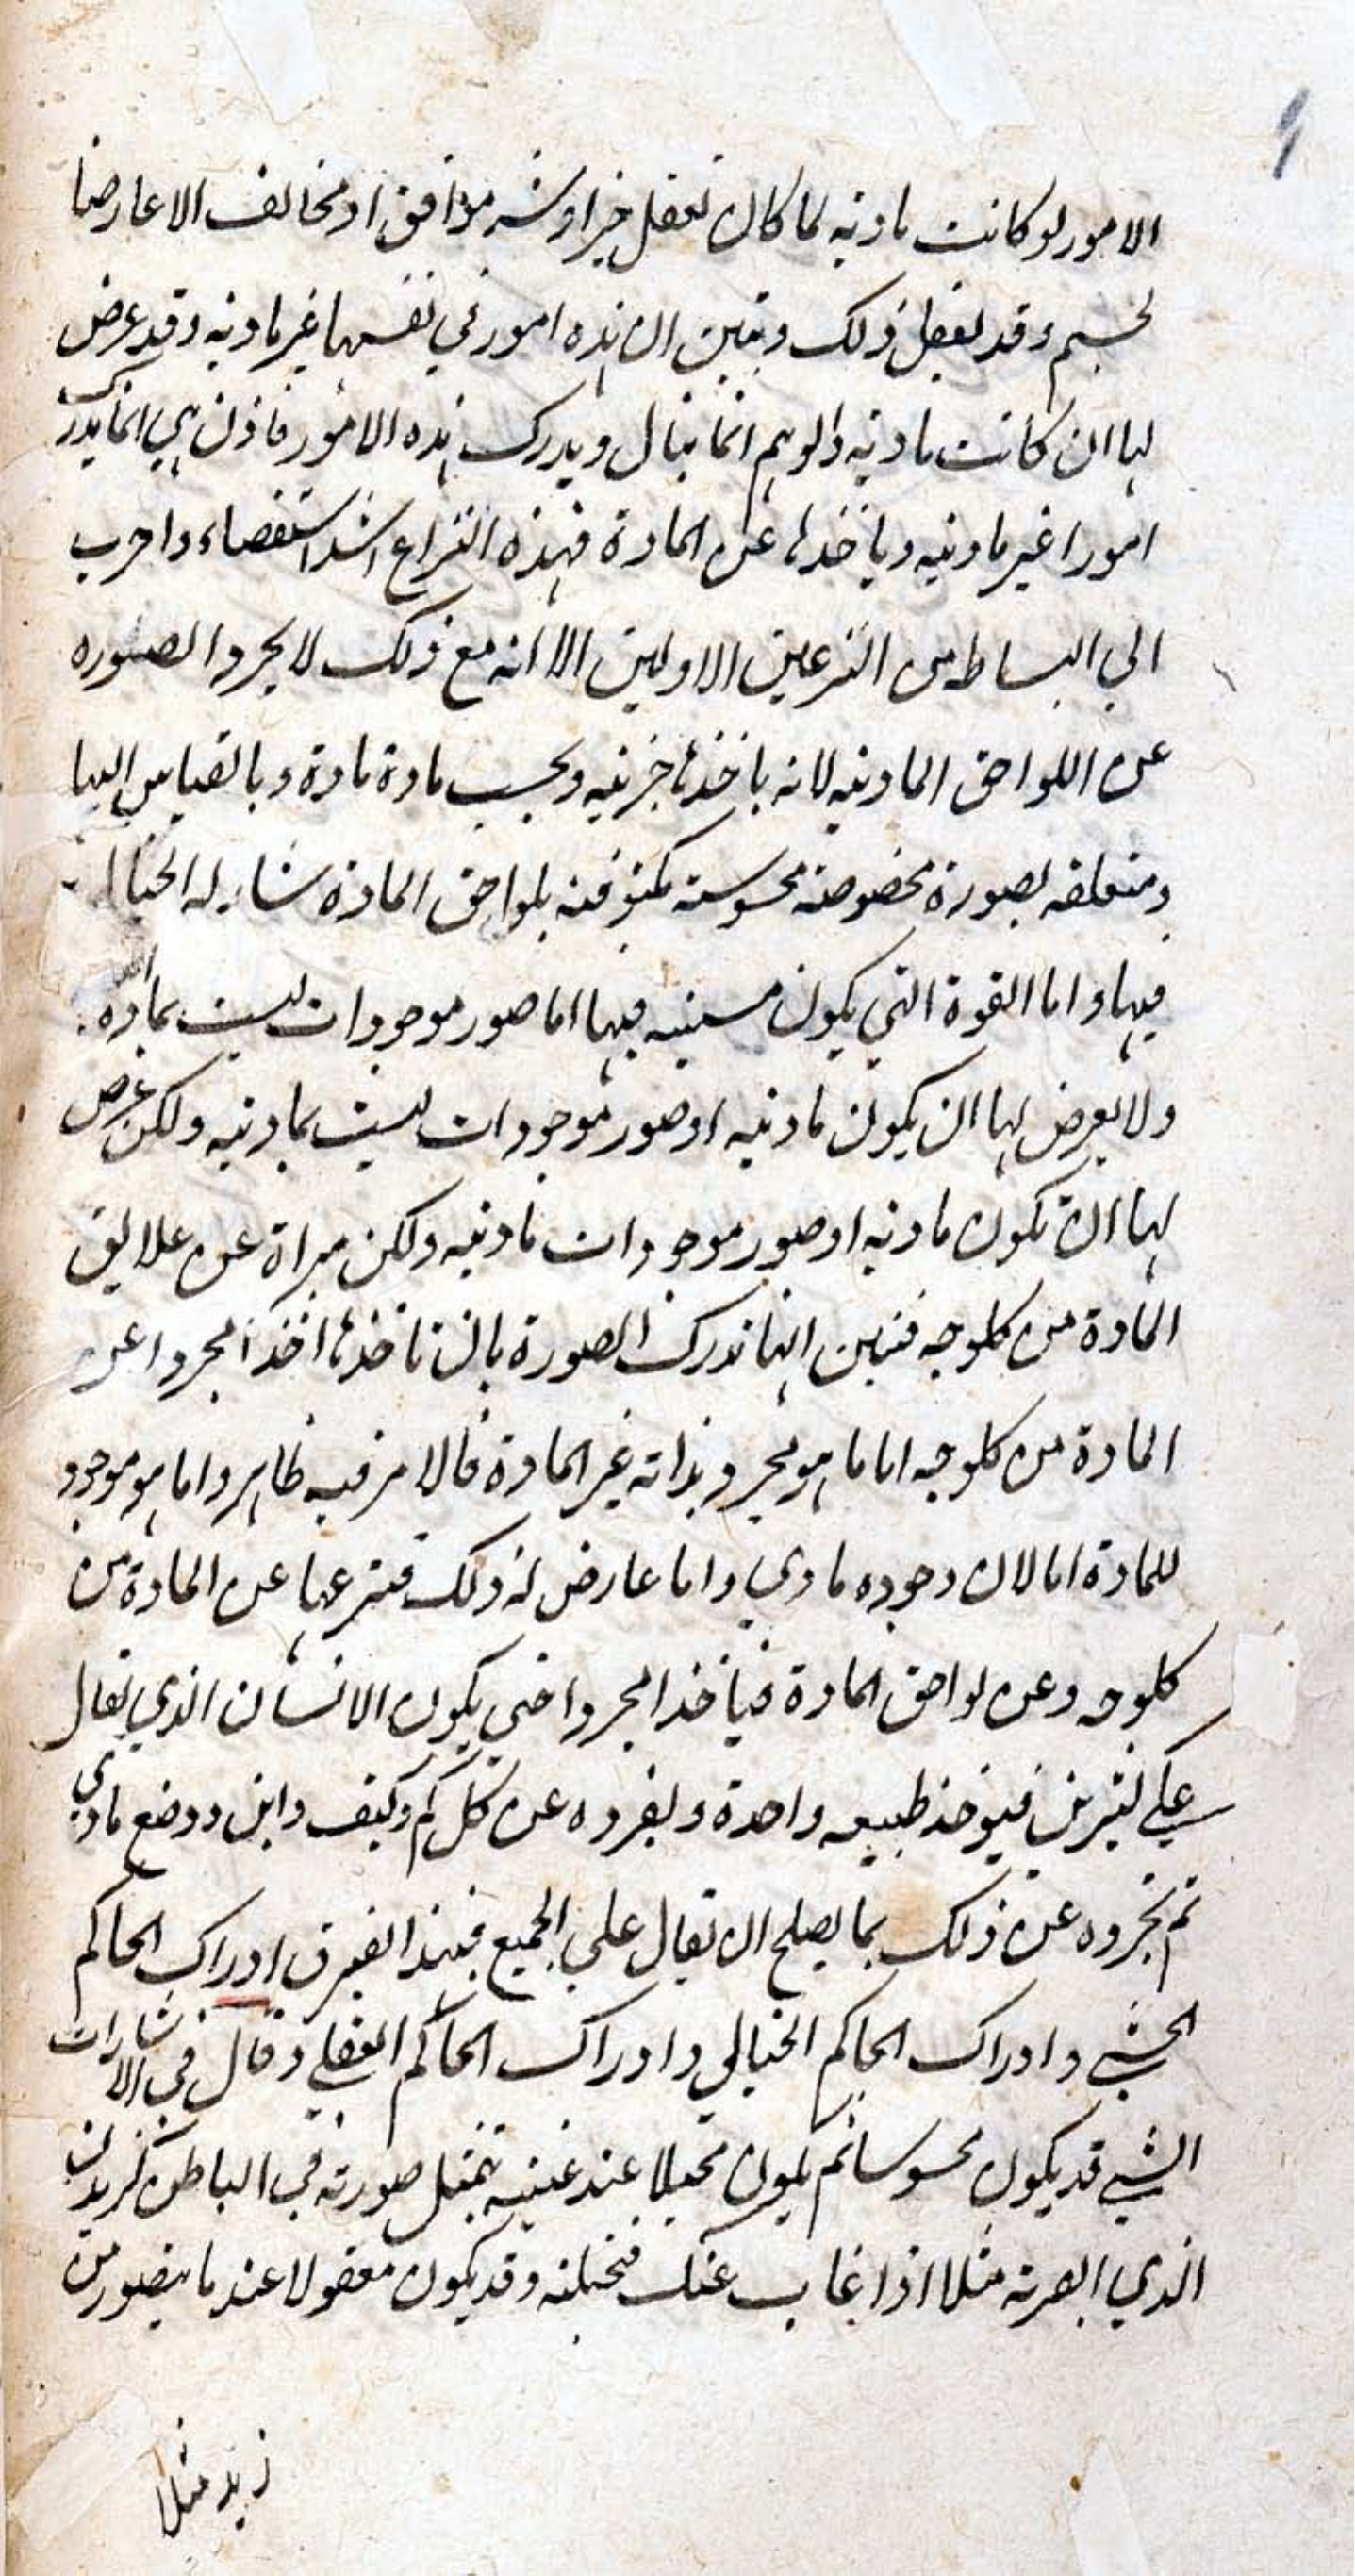 الامور لو كانت مادية لما كان تعقل خيرا وشر موافق او مخالف الا عارضا
لجسم وقد تعقل ذلك وتبين ان هذه امور في نفسها غير مادية وقد عرض
لها ان كانت مادية والوهم انما ينال ويدرك هذه الامور فاذن هي انما يدرك
امورا غير مادية وياخذها عن المادة فهذه النزاع اشد استقصاء واقرب
الي البساطه من النزعين الاولين الا انه مع ذلك لا يجردا الصوره
عن اللواحق المادية لانه ياخذها جزئيه وبحسب مادة مادة وبالقياس اليها
ومتعلقه بصورة مخصوصة محسوسته مكنوفة بلواحق المادة بمشاركة الخيال
فيها واما القوة التي يكون مستثبته فيها اما صور موجودات ليست بمادة
ولا يعرض لها ان يكون مادنيه او صور موجودات ليست بمادنيه ولكن عرض
لها ان تكون مادية او صور موجودات مادنيه ولكن مبراة عن علايق
المادة من كلوجه فتبين انها تدرك الصورة بان تاخذها اخذا مجردا عن
المادة من كلوجه اما ما هو مجرد بذاته غير المادة فالامر فيه ظاهر واما هو موجود
للمادة اما لان وجوده مادي واما عارض له ذلك فتنزعها عن المادة من
كلوجه وعن لواحق المادة فياخذا مجردا حتي يكون الانسان الذي يقال
علي كثيرين فيوخذ طبيعه واحدة ويفرده عن كل كم وكيف واين ووضع مادي
ثم تجرده عن ذلك بما يصلح ان يقال علي الجميع فبهذا الفرق ادراك الحاكم
الحسي وادراك الحاكم الخيالي وادراك الحاكم العقلي وقال في الاشارات
الشي قد يكون محسوسا ثم يكون متخيلا عند غيبته بتمثل صورته في الباطن كزيدن
الذي ابصرته مثلا اذا غاب عنك فتخيلته وقد يكون معقولا عند ما يتصور من
زيد مثلا